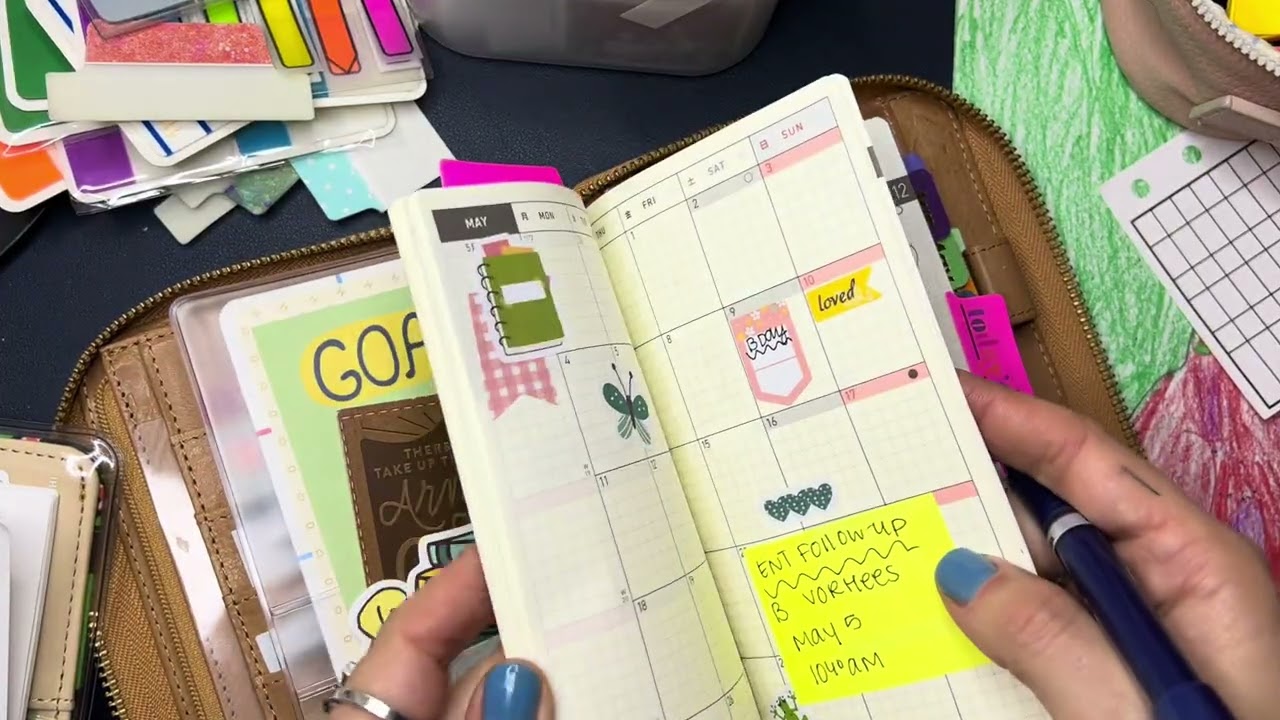 GOA
THERE
TAKE UP
MAY
月 MON
THU
金 FRI
土 SAT
日 SUN
1
2
3
4
5
8
9
10
11
12
15
16
17
18
19
12
BDAY
loved
ENT FOLLOW-UP
B VORHEES
MAY 5
1040 AM